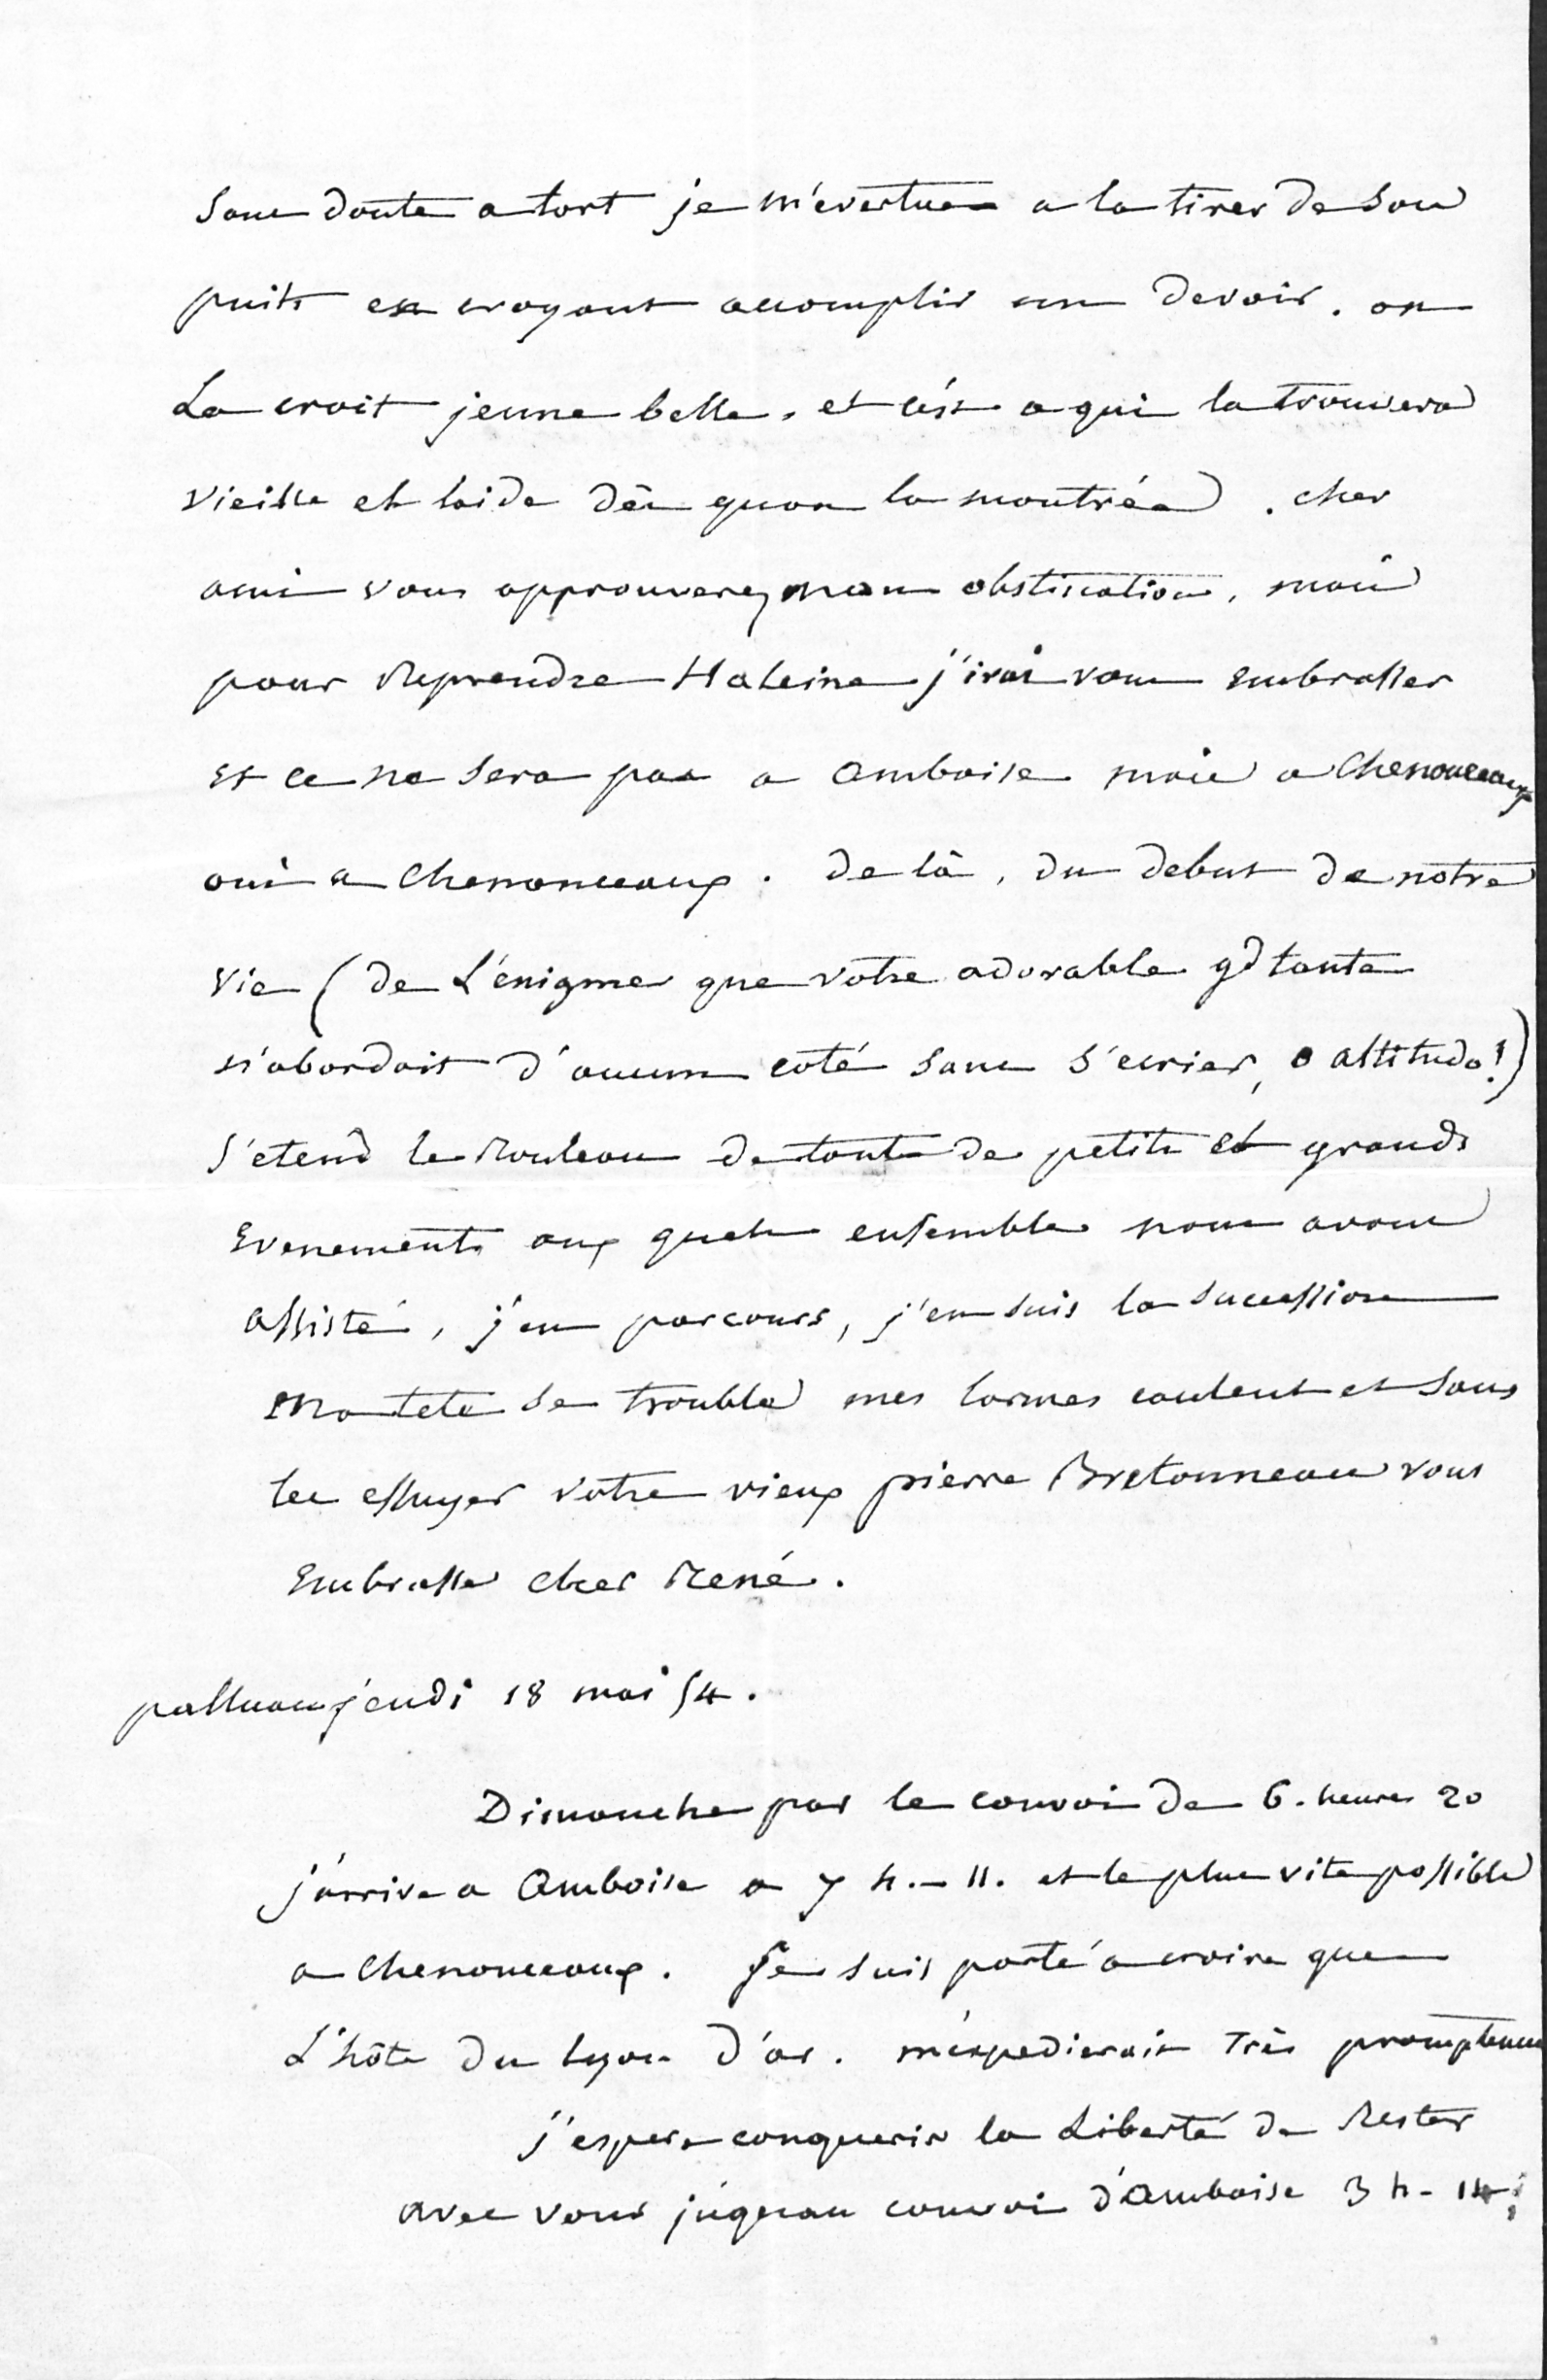 sans doute a tort je m'evertue a la tirer de son
puits en croyant accomplir un devoir. on
La croit jeune belle, et c'est a qui la trouvera
vieille et laide dès quon la montréa. cher
ami vous approuverez mon obstination, mais
pour Reprendre Haleine j'irai vous embrasser
Et ce ne sera pas a Amboise mais a Chenonceaux
oui a Chenonceaux. de là, du debut de notre
vie (de L'énigme que votre adorable gd tante
n'abordait d'aucun coté sans s'ecrier, o altitudo!)
s'etend le Rouleau de tant de petits et grands
Evenements aux quels ensemble nous avons
assisté, j'en parcours, j'en suis la succession
Ma tete se trouble mes larmes coulent et sans
les essuyer votre vieux pierre Bretonneau vous
Embrasse cher René.
palluau jeudi 18 mai 54.
Dimanche par le convoi de 6. heures 20
j'arrive a Amboise a 7 h. - 11. et le plus vite possible
a Chenonceaux. Je suis porté a croire que
L'hôte du Lyon d'or. m'expedierait Très promptement
j'espere conquerir la Liberté de Rester
avec vous júqu'au convoi d'Amboise 3 h - 14;